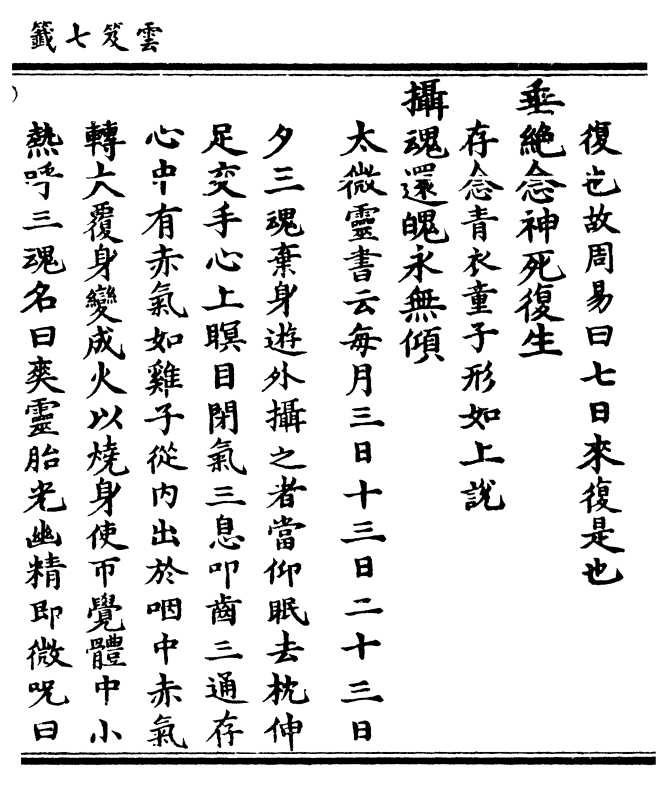 雲笈七籤
復也故周易曰七日來復是也
垂絶念神死復生
存念青衣童子形如上說
攝魂還魄永無傾
太微靈書云每月三日十三日二十三日
夕三魂棄身遊外攝之者當仰眠去枕伸
足交手心上瞑目閉氣三息叩齒三通存
心中有赤氣如雞子從内出於咽中赤氣
轉大覆身變成火以燒身使帀覺體中小
熱呼三魂名曰爽靈胎光幽精即微呪曰